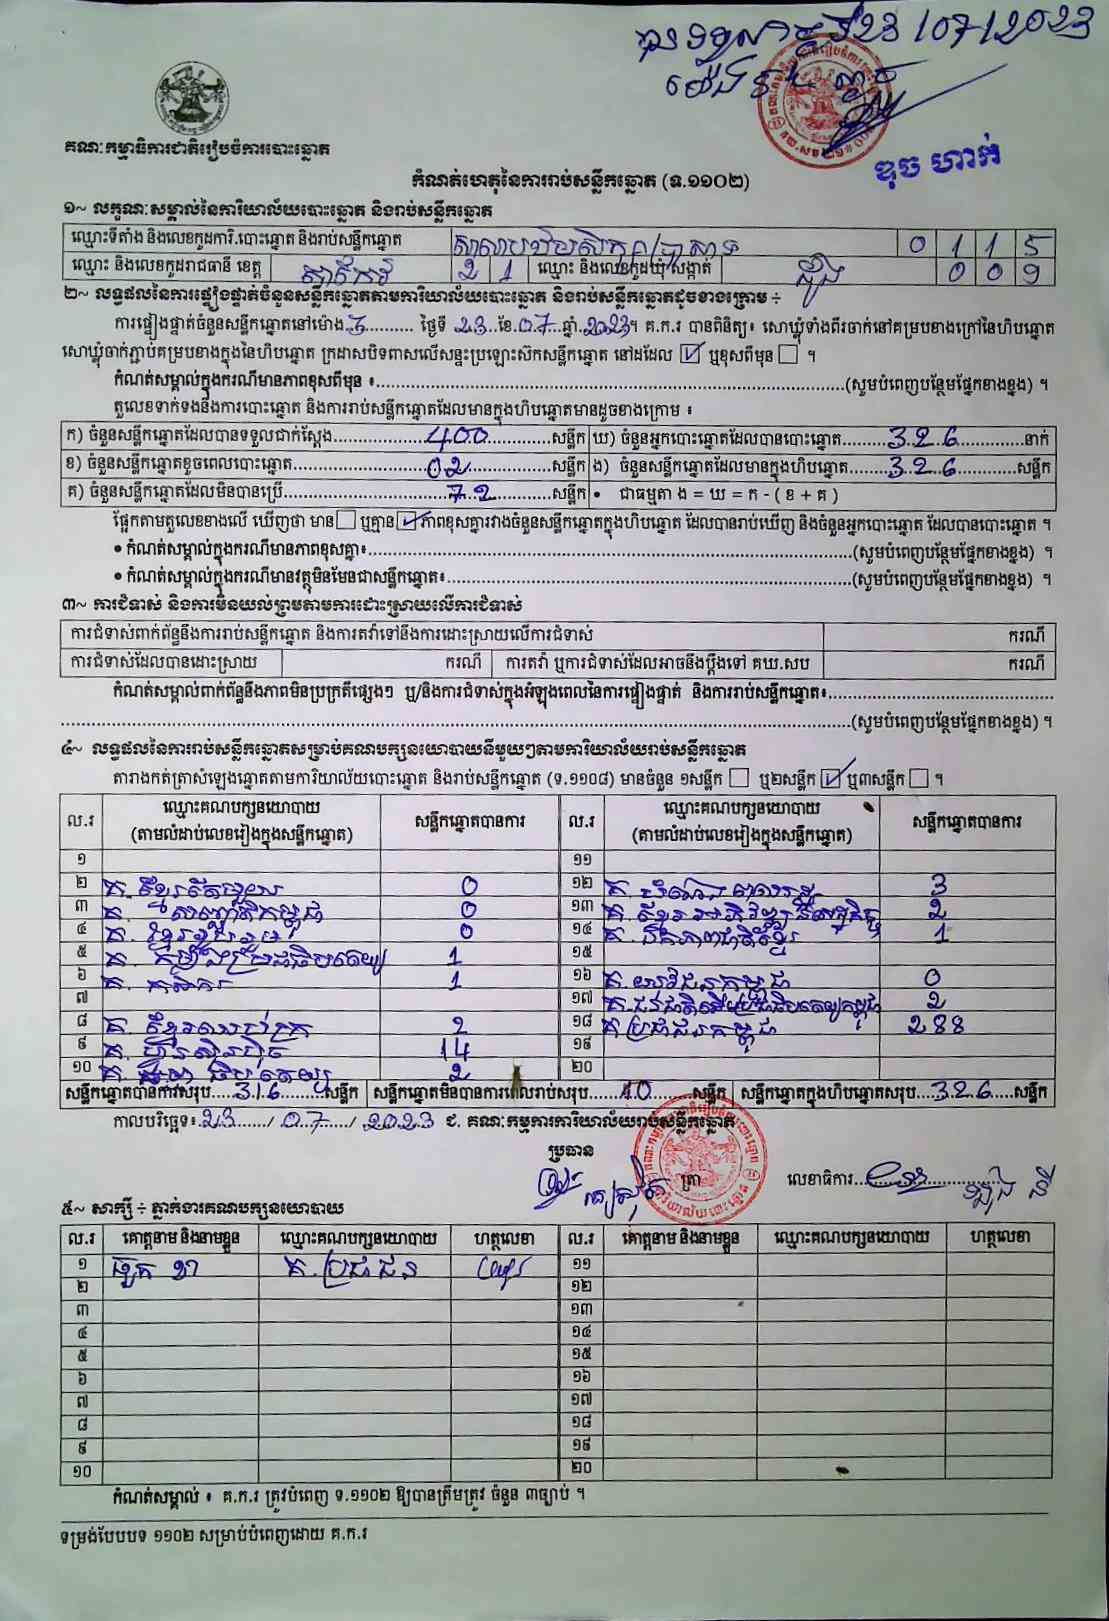 បានទទួលនៅថ្ងៃទី 23/07/2023
ម៉ោង
ឌុច ហាក់
គណៈកម្មាធិការជាតិរៀបចំការបោះឆ្នោត
កំណត់ហេតុនៃការរាប់សន្លឹកឆ្នោត (ទ.១១០២)
១~ លក្ខណៈសម្គាល់នៃការិយាល័យបោះឆ្នោត និងរាប់សន្លឹកឆ្នោត
ឈ្មោះទីតាំង និងលេខកូដការិ.បោះឆ្នោត និងរាប់សន្លឹកឆ្នោត សាលាបឋមសិក្សា 0 1 1 5
ឈ្មោះ និងលេខកូដរាជធានី ខេត្ត តាកែវ 2 1 ឈ្មោះ និងលេខកូដឃុំ សង្កាត់ 0 0 9
២~ លទ្ធផលនៃការផ្ទៀងផ្ទាត់ចំនួនសន្លឹកឆ្នោតតាមការិយាល័យបោះឆ្នោត និងរាប់សន្លឹកឆ្នោតដូចខាងក្រោម ÷
ការផ្ទៀងផ្ទាត់ចំនួនសន្លឹកឆ្នោតនៅម៉ោង 3 ថ្ងៃទី 23 ខែ 07 ឆ្នាំ 2023។ គ.ក.រ បានពិនិត្យ៖ សោឃ្លុំទាំងពីរចាក់នៅគម្របខាងក្រៅនៃហិបឆ្នោត
សោឃ្លុំចាក់ភ្ជាប់គម្របខាងក្នុងនៃហិបឆ្នោត ក្រដាសបិទពាសលើសន្ទះប្រឡោះស៊កសន្លឹកឆ្នោត នៅដដែល ☑ ឬខុសពីមុន ☐ ។
កំណត់សម្គាល់ក្នុងករណីមានភាពខុសពីមុន ៖........(សូមបំពេញបន្ថែមផ្នែកខាងខ្នង) ។
តួលេខទាក់ទងនឹងការបោះឆ្នោត និងការរាប់សន្លឹកឆ្នោតដែលមានក្នុងហិបឆ្នោតមានដូចខាងក្រោម ៖
ក) ចំនួនសន្លឹកឆ្នោតដែលបានទទួលជាក់ស្តែង 400 សន្លឹក ឃ) ចំនួនអ្នកបោះឆ្នោតដែលបានបោះឆ្នោត 326 នាក់
ខ) ចំនួនសន្លឹកឆ្នោតខូចពេលបោះឆ្នោត 02 សន្លឹក ង) ចំនួនសន្លឹកឆ្នោតដែលមានក្នុងហិបឆ្នោត 326 សន្លឹក
គ) ចំនួនសន្លឹកឆ្នោតដែលមិនបានប្រើ 72 សន្លឹក • ជាធម្មតា ង = ឃ = ក - ( ខ + គ )
ផ្អែកតាមតួលេខខាងលើ ឃើញថា មាន ☐ ឬគ្មាន ☑ ភាពខុសគ្នារវាងចំនួនសន្លឹកឆ្នោតក្នុងហិបឆ្នោត ដែលបានរាប់ឃើញ និងចំនួនអ្នកបោះឆ្នោត ដែលបានបោះឆ្នោត ។
• កំណត់សម្គាល់ក្នុងករណីមានភាពខុសគ្នា៖........(សូមបំពេញបន្ថែមផ្នែកខាងខ្នង) ។
• កំណត់សម្គាល់ក្នុងករណីមានវត្ថុមិនមែនជាសន្លឹកឆ្នោត៖........(សូមបំពេញបន្ថែមផ្នែកខាងខ្នង) ។
៣~ ការជំទាស់ និងការមិនយល់ព្រមតាមការដោះស្រាយលើការជំទាស់
ការជំទាស់ពាក់ព័ន្ធនឹងការរាប់សន្លឹកឆ្នោត និងការតវ៉ាទៅនឹងការដោះស្រាយលើការជំទាស់ ករណី
ការជំទាស់ដែលបានដោះស្រាយ ករណី ការតវ៉ា ឬការជំទាស់ដែលអាចនឹងប្តឹងទៅ គឃ.សប ករណី
កំណត់សម្គាល់ពាក់ព័ន្ធនឹងភាពមិនប្រក្រតីផ្សេងៗ ឬ/និងការជំទាស់ក្នុងអំឡុងពេលនៃការផ្ទៀងផ្ទាត់ និងការរាប់សន្លឹកឆ្នោត៖........
........(សូមបំពេញបន្ថែមផ្នែកខាងខ្នង) ។
៤~ លទ្ធផលនៃការរាប់សន្លឹកឆ្នោតសម្រាប់គណបក្សនយោបាយនីមួយៗតាមការិយាល័យរាប់សន្លឹកឆ្នោត
តារាងកត់ត្រាសំឡេងឆ្នោតតាមការិយាល័យបោះឆ្នោត និងរាប់សន្លឹកឆ្នោត (ទ.១១០៨) មានចំនួន ១សន្លឹក ☐ ឬ២សន្លឹក ☑ ឬ៣សន្លឹក ☐ ។
ល.រ ឈ្មោះគណបក្សនយោបាយ (តាមលំដាប់លេខរៀងក្នុងសន្លឹកឆ្នោត) សន្លឹកឆ្នោតបានការ ល.រ ឈ្មោះគណបក្សនយោបាយ (តាមលំដាប់លេខរៀងក្នុងសន្លឹកឆ្នោត) សន្លឹកឆ្នោតបានការ
១ ១១
២ គ. ខ្មែរតែមួយ 0 ១២ គ. 3
៣ គ. 0 ១៣ គ. ខ្មែរអភិវឌ្ឍន៍សេដ្ឋកិច្ច 2
៤ គ. ខ្មែររួបរួម 0 ១៤ គ. ឯកភាពជាតិខ្មែរ 1
៥ គ. កម្លាំងប្រជាធិបតេយ្យ 1 ១៥
៦ គ. កសិករ 1 ១៦ គ. យុវជនកម្ពុជា 0
៧ ១៧ គ. ជនជាតិដើមប្រជាធិបតេយ្យកម្ពុជា 2
៨ គ. ខ្មែរឈប់ក្រ 2 ១៨ គ ប្រជាជនកម្ពុជា 288
៩ គ. ហ៊្វុនស៊ិនប៉ិច 14 ១៩
១០ គ. ប្រជាធិបតេយ្យ 2 ២០
សន្លឹកឆ្នោតបានការសរុប 316 សន្លឹក សន្លឹកឆ្នោតមិនបានការពេលរាប់សរុប 10 សន្លឹក សន្លឹកឆ្នោតក្នុងហិបឆ្នោតសរុប 326 សន្លឹក
កាលបរិច្ឆេទ៖ 23 / 07 / 2023 ជ. គណៈកម្មការការិយាល័យរាប់សន្លឹកឆ្នោត
ប្រធាន
ត្រា លេខាធិការ
៥~ សាក្សី ÷ ភ្នាក់ងារគណបក្សនយោបាយ
ល.រ គោត្តនាម និងនាមខ្លួន ឈ្មោះគណបក្សនយោបាយ ហត្ថលេខា ល.រ គោត្តនាម និងនាមខ្លួន ឈ្មោះគណបក្សនយោបាយ ហត្ថលេខា
១ គ. ប្រជាជន ១១
២ ១២
៣ ១៣
៤ ១៤
៥ ១៥
៦ ១៦
៧ ១៧
៨ ១៨
៩ ១៩
១០ ២០
កំណត់សម្គាល់ ៖ គ.ក.រ ត្រូវបំពេញ ទ.១១០២ ឱ្យបានត្រឹមត្រូវ ចំនួន ៣ច្បាប់ ។
ទម្រង់បែបបទ ១១០២ សម្រាប់បំពេញដោយ គ.ក.រ